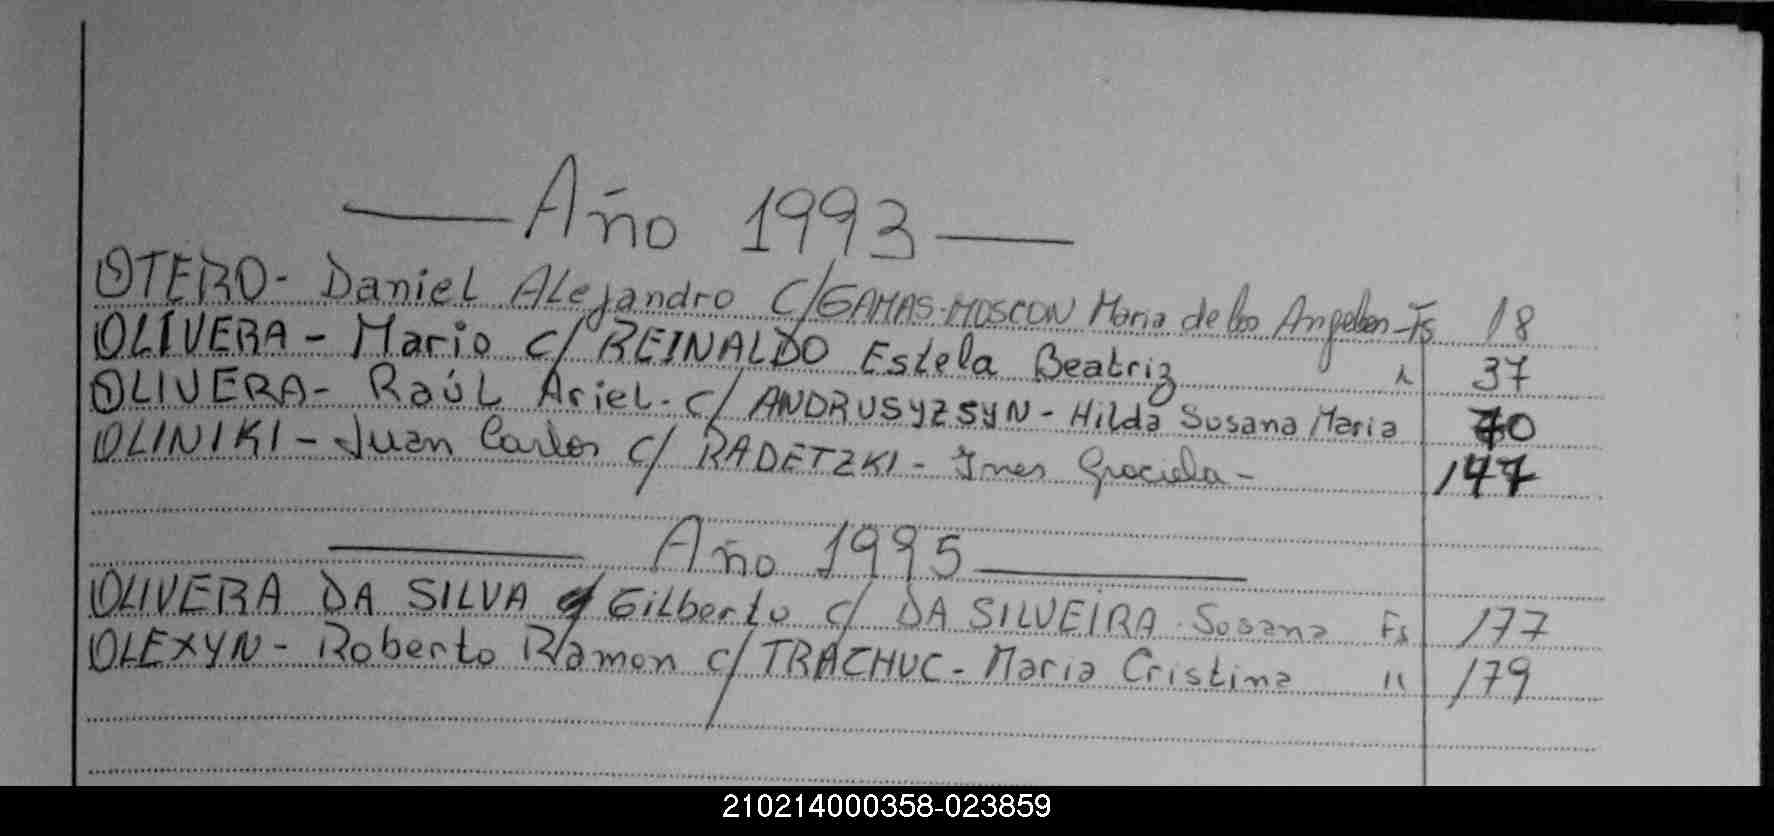 Año 1993
OTERO - Daniel Alejandro C/ GAMAS-MOSCON Maria de los Angeles - Fs 18
OLIVERA - Mario c/ REINALDO Estela Beatriz " 37
OLIVERA - Raúl Ariel - c/ ANDRUSYZSYN - Hilda Susana Maria 70
OLINIKI - Juan Carlos c/ RADETZKI - Ines Graciela - 147
Año 1995
OLIVERA DA SILVA Gilberto c/ DA SILVEIRA - Susana Fs 177
OLEXYN - Roberto Ramon c/ TRACHUC - Maria Cristina " 179
210214000358-023859